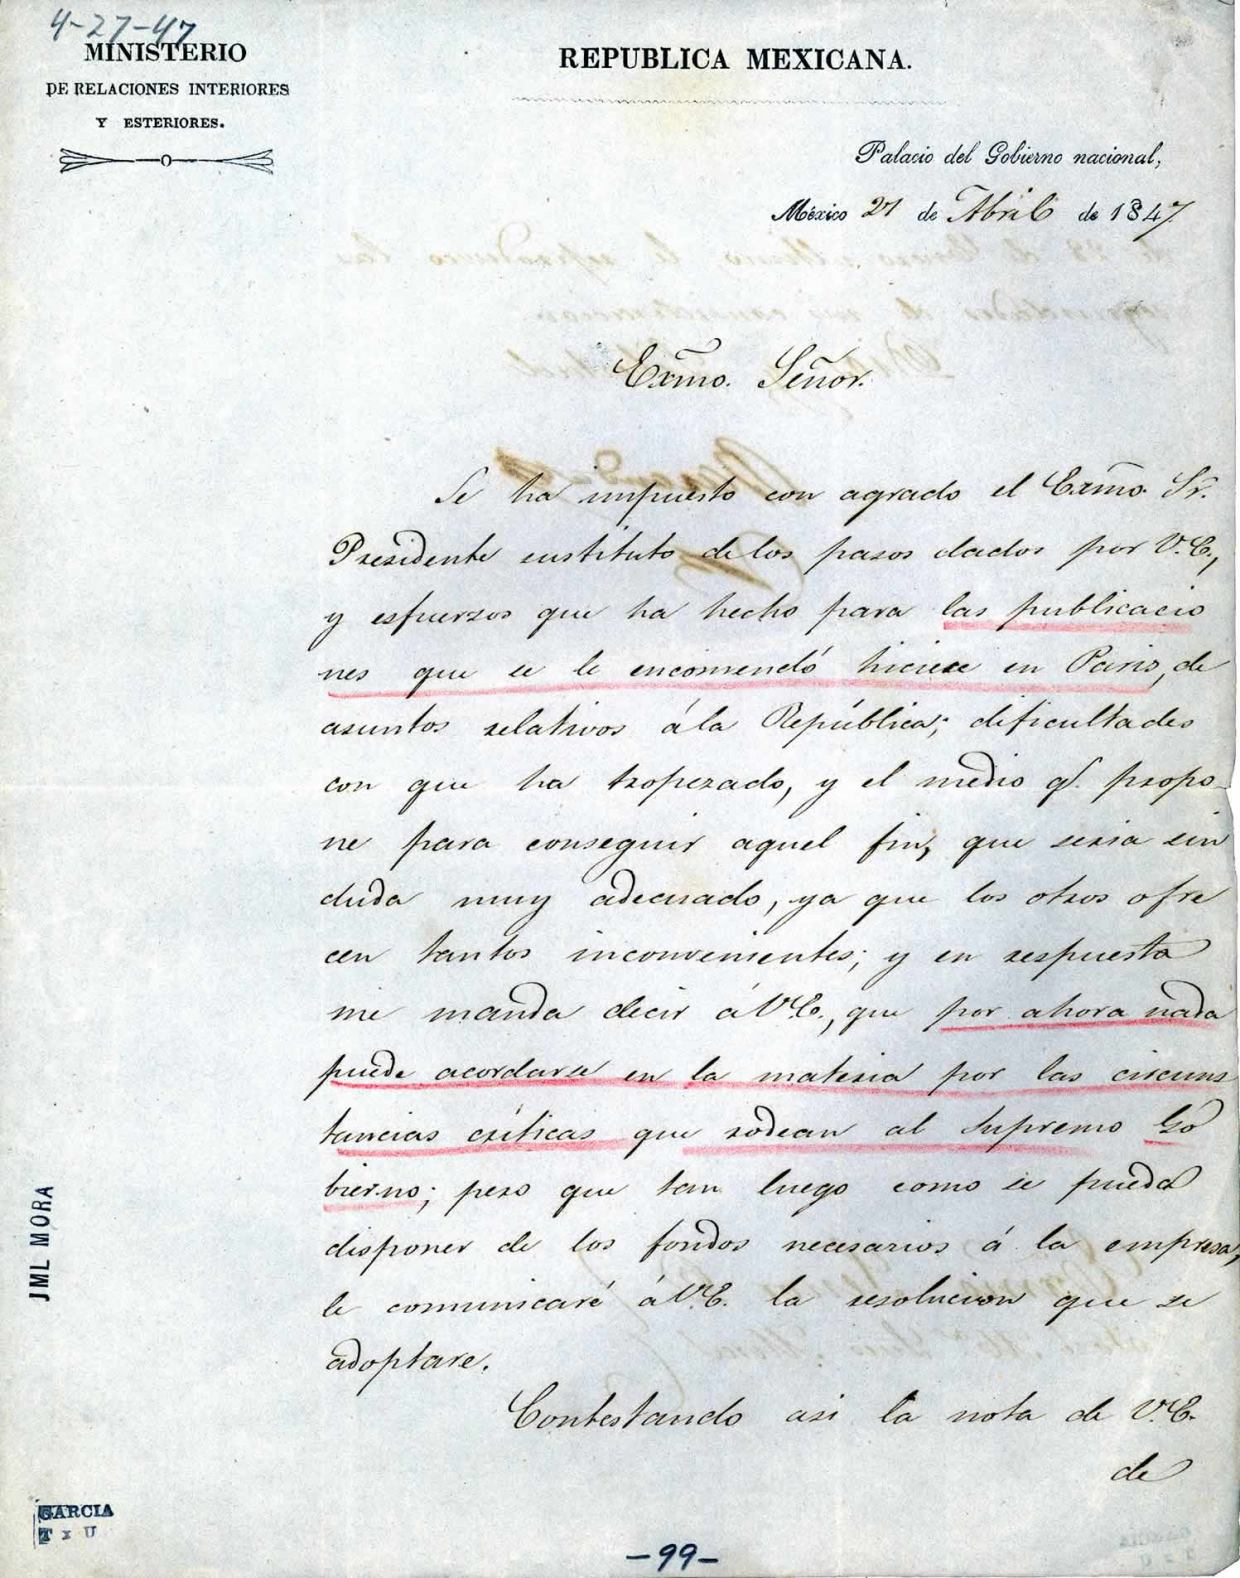 4-27-47
MINISTERIO
DE RELACIONES INTERIORES
Y ESTERIORES.
REPUBLICA MEXICANA.
Palacio del Gobierno nacional,
México 27 de Abril de 1847
Exmo. Señor.
Se ha impuesto con agrado el Exmo. Sr.
Presidente sustituto de los pasos dados por V.E.,
y esfuerzos que ha hecho para las publicacio
nes que se le encomendó hiciese en Paris, de
asuntos relativos á la República; dificultades
con que ha tropezado, y el medio q.e propo-
ne para conseguir aquel fin, que seria sin
duda muy adecuado, ya que los otros ofre
cen tantos inconvenientes; y en respuesta
me manda decir á V.E., que por ahora nada
puede acordarse en la materia por las circuns
tancias críticas que rodean al Supremo Go
bierno; pero que tan luego como se pueda
disponer de los fondos necesarios á la empresa,
le comunicaré á V.E. la resolucion que se
adoptare.
Contestando asi la nota de V.E.
de
JML MORA
GARCIA
-99-